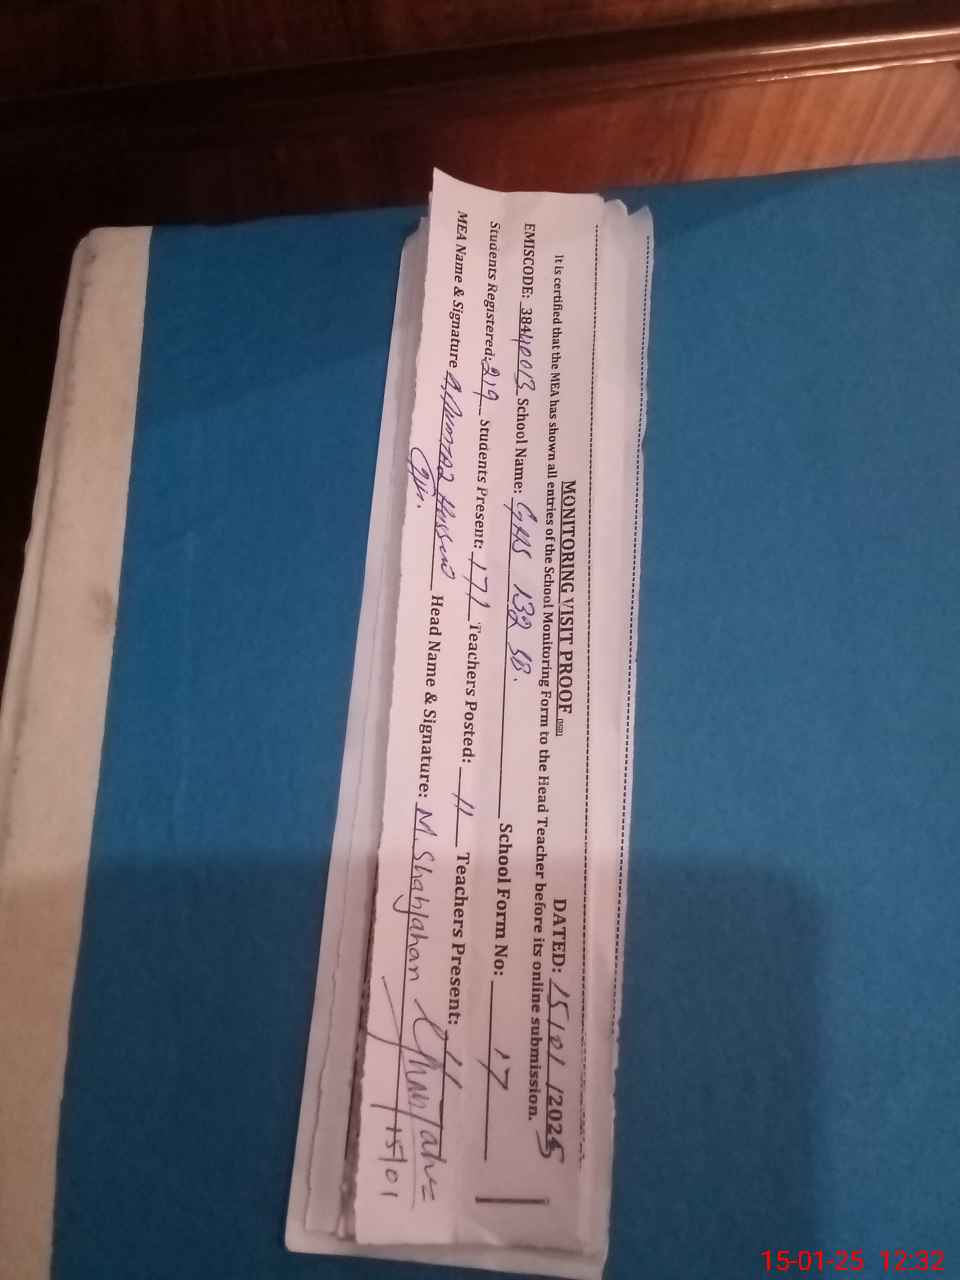 MONITORING VISIT PROOF DATED: 15/01/2025
It is certified that the MEA has shown all entries of the School Monitoring Form to the Head Teacher before its online submission.
EMISCODE: 38440013 School Name: GHS 132 SB. School Form No: 17
Students Registered: 219 Students Present: 171 Teachers Posted: 11 Teachers Present: 11
MEA Name & Signature Hussain Head Name & Signature: M. Shahjahan
15/01
15-01-25 12:32